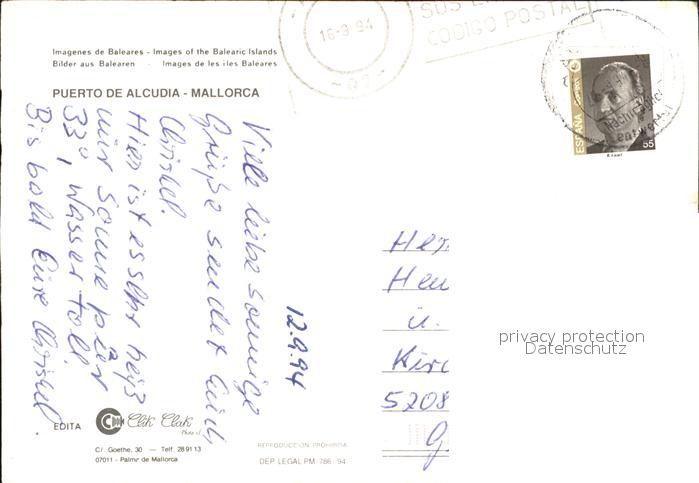 Imagenes de Baleares - Images of the Balearic Islands
Bilder aus Balearen - Images de les iles Baléares
PUERTO DE ALCUDIA - MALLORCA
16-9-94
- 09 -
SUS
CODIGO POSTAL
ESPAÑA
55
Viele liebe sonnige
Grüße sendet Euch
Christel.
Hier ist es sehr heiß
nur Sonne pur
33°, Wasser toll.
Bis bald Eure Christel.
12.9.94
Her
Heu
u.
Kirc
5208
G
privacy protection
Datenschutz
EDITA
Clik Clak
C/. Goethe, 30 — Telf. 28 91 13
07011 - Palma de Mallorca
REPRODUCCION PROHIBIDA
DEP LEGAL PM 786-94